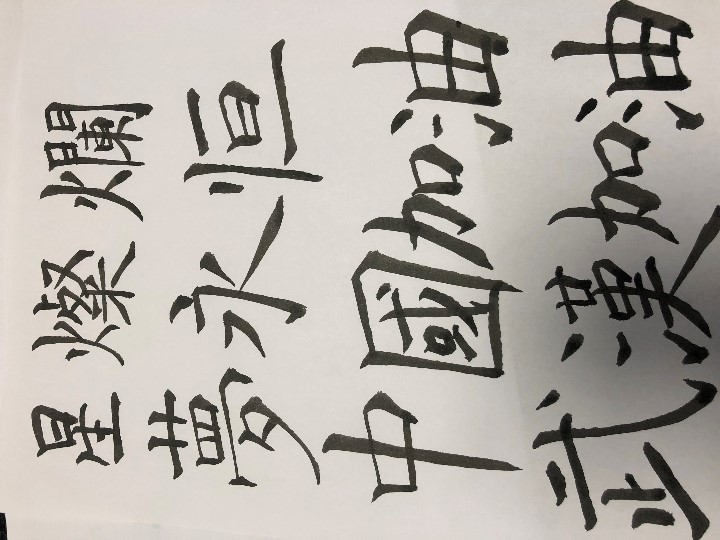 星燦爛
夢永恒
中國加油
武漢加油